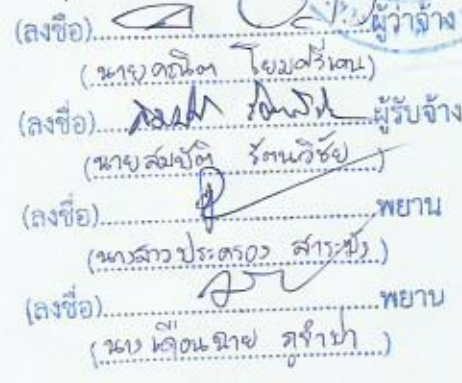 (ลงชื่อ)........................ผู้ว่าจ้าง
(นายคณิต โยมศรีเคน)
(ลงชื่อ)........................ผู้รับจ้าง
(นายสมบัติ รัตนวิชัย)
(ลงชื่อ)........................พยาน
(นางสาวประครอง สาระมัง)
(ลงชื่อ)........................พยาน
(นางเดือนฉาย ภูจำปา)